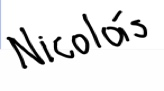 Nicolás